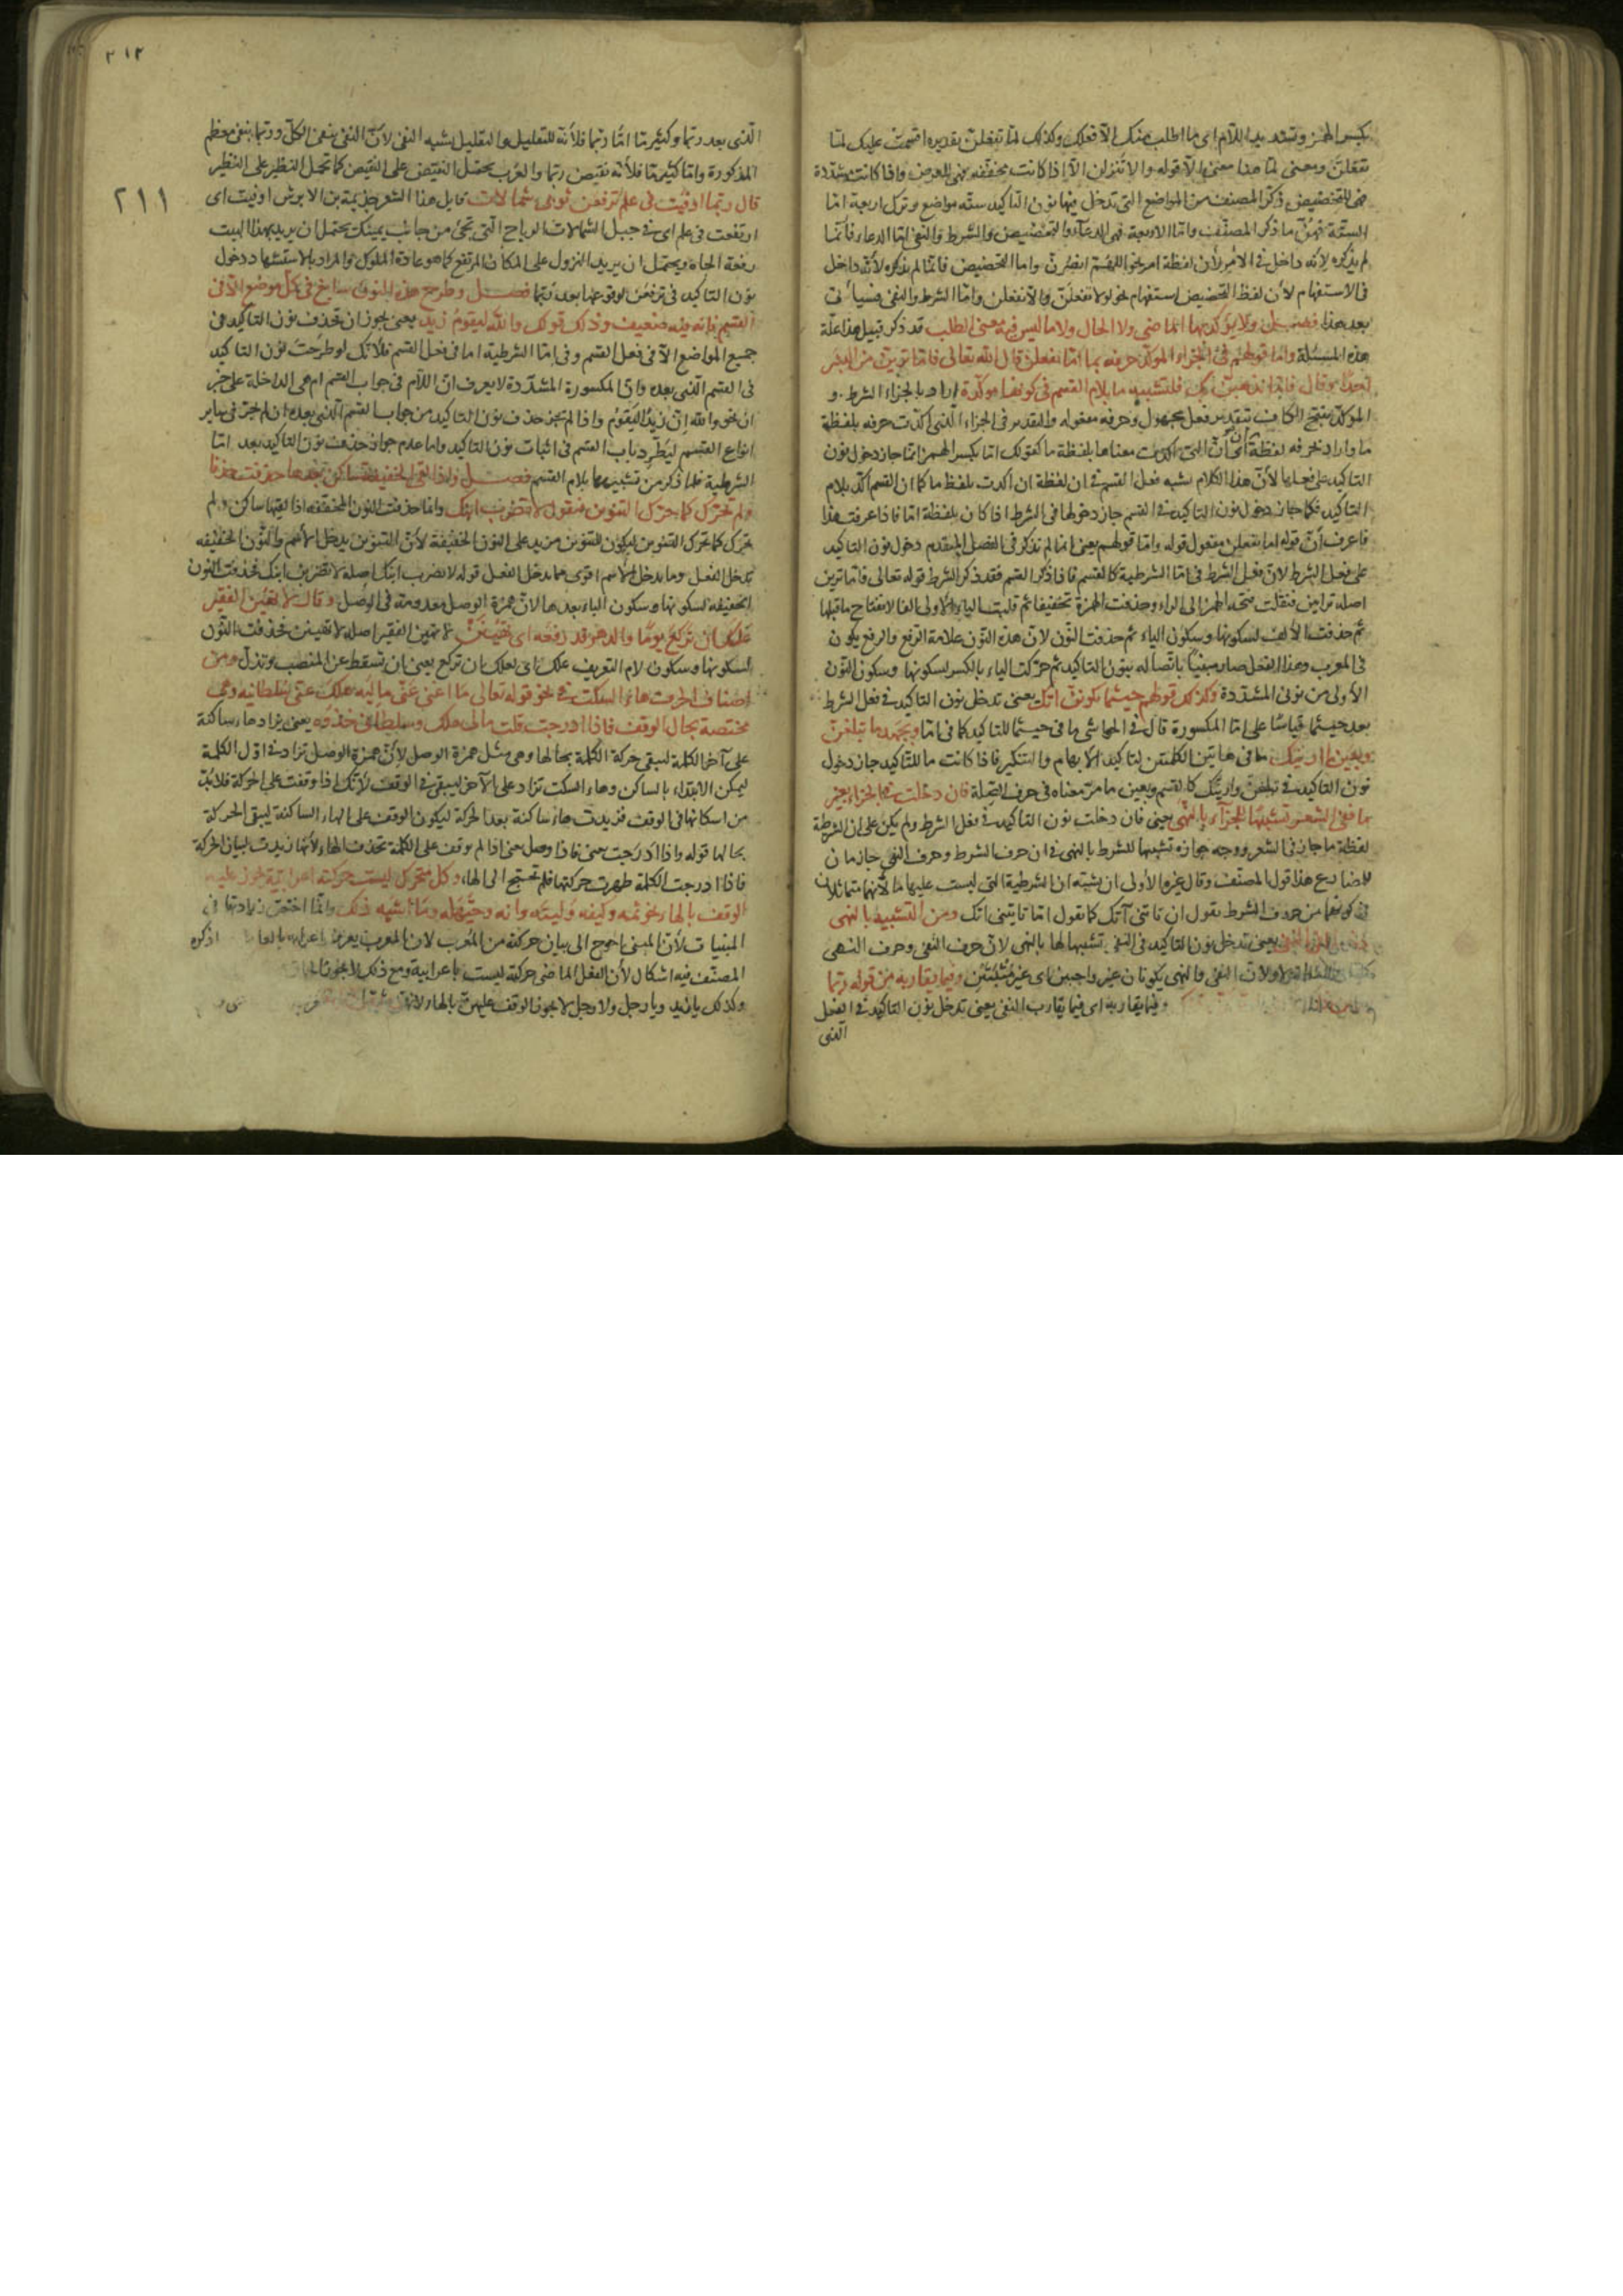 بكسر الهمز وتشديد اللام اى ما اطلب منك الا فعلك وكذلك لمّا تفعلنّ تقديره اقسمت عليك لمّا
تفعلنّ ومعنى لمّا هذا معنى الّا قوله والا تنزلن الا اذا كانت مخففه فهى للعرض واذا كانت مشدّدة
فهى للتخصيص ذكر المصنف من المواضع التى تدخل فيها نون التاكيد ستّه مواضع وترك اربعة امّا
الستّة فهنّ ما ذكر المصنّف وامّا الاربعة فهى الدعاء والتحضيض والشرط والنفى امّا الدعاء فانّما
لم يذكره لانّه داخل فى الامر لأن لفظة امر نحو اللهم انصرنّ واما التحضيض فانّما لم يذكره لأنّه داخل
فى الاستفهام لأن لفظ التحضيض استفهام نحو لولا تفعلنّ والا تفعلن وامّا الشرط والنفى فسيأتى
بعد هذا فصـل ولا يؤكد بها الماضى ولا الحال ولا ما ليس فيه معنى الطلب قد ذكر قبيل هذا علّة
هذه المسئلة وامّا قولهم فى الجزاء المؤكّد حرفه بما امّا تفعلنّ قال الله تعالى فامّا ترينّ من البشر
احدًا وقال فامّا نذهبنّ بك فلتشبيه ما بلام القسم فى كونها مؤكّدة اراد بالجزاء الشرط و
المؤكّد بفتح الكاف بتقدير فعل مجهول وحرفه مفعوله والتقدير فى الجزاء الّذى اكّدت حرفه بلفظة
ما واراد بحرفه لفظة ان اى ان التى اكدت معناها بلفظة ما كقولك امّا بكسر الهمز انما جاز دخول نون
التاكيد على فعلها لأنّ هذا الكلام يشبه فعل القسم فى ان لفظة ان اكدت بلفظ ما كما ان القسم اكّد بلام
التاكيد فكما جاز دخول نون التاكيد فى القسم جاز دخولها فى الشرط اذا كان بلفظة امّا فاذا عرفت هذا
فاعرف أنّ قوله اما تفعلن مفعول قوله وامّا قولهم يعنى انما لم نذكر فى الفصل المتقدم دخول نون التاكيد
على فعل الشرط لانّ فعل الشرط فى امّا الشرطية كالقسم فاذا ذكر القسم فقد ذكر الشرط قوله تعالى فامّا ترين
اصله ترايين فنقلت فتحة الهمز الى الراء وحذفت الهمزة تخفيفا ثم قلبت الياء الأولى الفا لانفتاح ما قبلها
ثم حذفت الألف لسكونها وسكون الياء ثم حذفت النّون لانّ هذه النّون علامة الرفع والرفع يكون
فى المعرب وهذا الفعل صار مبنيا باتّصاله بنون التاكيد ثم حرّكت الياء بالكسر لسكونها وسكون النّون
الأولى من نونى المشدّدة وكذلك قولهم حيثما تكوننّ اتك يعنى تدخل نون التاكيد فى فعل الشرط
بعد حيثما قياسًا على امّا المكسورة قال فى الحواشى ما فى حيثما للتاكيد كما فى امّا وبجهد ما تبلغنّ
وبعين ما ارينك ما فى هاتين الكلمتين لتاكيد الابهام والتنكير فاذا كانت ما للتّاكيد جاز دخول
نون التاكيد فى تبلغنّ وارينّك كالقسم وبعين ما مرّ معناه فى حرف الصّلة فان دخلت فى الجزاء بغير
ما ففى الشعر تشبيها للجزاء بالنّهى يعنى فان دخلت نون التاكيد فى فعل الشرط ولم يكن على ان الشرطية
لفظة ما جاز فى الشعر ووجه جوازه تشبيها للشرط بالنهى فى ان حرف الشرط وحرف النهى جازمان
للمضارع هذا قول المصنّف وقال غيره الأولى ان يشبّه ان الشرطية التى ليست عليها ما لأنّهما متماثلان
فى كونهما من حروف الشرط تقول ان تاتنى آتك كما تقول امّا تاتينى اتك ومن التشبيه بالنهى
يعنى تدخل نون التاكيد فى النفى تشبيها لها بالنهى لانّ حرف النفى وحرف النهى
ولانّ النفى والنهى يكونان غير واجبين اى غير مثبتين وفيما يقاربه من قوله ربّما
وفيما يقاربه اى فيما يقارب النفى يعنى تدخل نون التاكيد فى الفعل
الذى
٢١٢
٢١١
الّذى بعد ربّما وكثير ما امّا ربّما فلأنّه للتقليل والتقليل يشبه النفى لأنّ النفى ينفى الكلّ وربّما ينفى معظم
المذكورة وامّا كثير ما فلأنّه نقيض ربّما والعرب يحمل النقيض على النقيض كما تحمل النظير على النظير
قال ربّما اوفيت فى علم ترفعن ثوبى شمالات قايل هذا الشعر جذيمة بن الابرش اوفيت اى
ارتفعت فى علم اى فى جبل الشمالات الرياح الّتى تجئ من جانب يمينك يحتمل ان يريد بهذا البيت
رفعة الجاه ويحتمل ان يريد النزول على المكان المرتفع كما هو عادة الملوك والمراد بالاستشهاد دخول
نون التاكيد فى ترفعن لوقوعها بعد ربّما فصـل وطرح هذه النون سائغ فى كلّ موضع الّا فى
القسم فانه فيه ضعيف وذلك قولك والله ليقوم زيد يعنى يجوز ان تحذف نون التاكيد فى
جميع المواضع الّا فى فعل القسم وفى امّا الشرطية اما فى فعل القسم فلأنّك لو طرحت نون التاكيد
فى القسم الّذى بعده وانّ المكسورة المشدّدة لا يعرف انّ اللام فى جواب القسم ام هى الداخلة على خبر
ان نحو والله انّ زيدًا ليقوم واذا لم يجز حذف نون التاكيد من جواب القسم الّذى بعده ان لم يجز فى ساير
انواع القسم ليطّرد باب القسم فى اثبات نون التاكيد واما عدم جواز حذف نون التاكيد بعد امّا
الشرطية فلما ذكر من تشبيهها بلام القسم فصـل واذا لقى الخفيفة ساكن بعدها حذفت حذفا
ولم تحرّك كما حرّك التنوين فتقول لا تضرب ابنك وانما حذفت النون المخففه اذا لقيها ساكن ولم
تحرّك كما تحرّك التنوين ليكون للتنوين مزيد على النون الخفيفة لأنّ التنوين يدخل الأسم والنّون الخفيفه
تدخل الفعل وما يدخل الأسم اقوى مما يدخل الفعل قوله لا تضرب ابنك اصله لا تضربن ابنك فحذفت النون
الخفيفة لسكونها وسكون الباء بعدها لانّ همزة الوصل معدومة فى الوصل وقال لا تهين الفقير
علّك ان تركع يومًا والدهر قد رفعه اى لا تهينن لا تهين الفقير اصله لا تهينن فحذفت النّون
لسكونها وسكون لام التعريف علك اى لعلك ان تركع يعنى ان تسقط عن المنصب وتذلّ ومن
اصناف الحرف هاء السكت فى نحو قوله تعالى ما اغنى عنّى ماليه هلك عنّى سلطانيه وهى
مختصة بحال الوقف فاذا ادرجت قلت مالى هلك وسلطانى خذوه يعنى يزاد هاء ساكنة
على آخر الكلمة لتبقى حركة الكلمة بحالها وهى مثل همزة الوصل لأنّ همزة الوصل تزاد فى اوّل الكلمة
ليمكن الابتداء بالساكن وهاء السكت تزاد على الآخر ليبقى فى الوقف لأنّك اذا وقفت على الحركة فلا بدّ
من اسكانها فى الوقف فزيدت هاء ساكنة بعد الحركة ليكون الوقف على الهاء الساكنة ليبقى الحركة
بحالها قوله واذا ادرجت يعنى فاذا وصل يعنى اذا لم يوقف على الكلمة تحذف الهاء لأنّها زيدت لبيان الحركة
فاذا ادرجت الكلمة ظهرت حركتها فلم تحتج الى الهاء وكل متحرك ليست حركته اعرابية يجوز عليه
الوقف بالهاء نحو ثمّه وكيفه وليته وانه وحيّهله وما اشبه ذلك وانّما اختصّ زيادتها فى
المبنيات لأنّ المبنى احوج الى بيان حركته من المعرب لان المعرب يعرف اعرابه بالعا اذكره
المصنّف فيه اشكال لأن الفعل الماضى حركته ليست باعرابية ومع ذلك لا يجوز
وكذلك يا زيد ويا رجل ولا رجل لا يجوز الوقف عليهنّ بالهاء